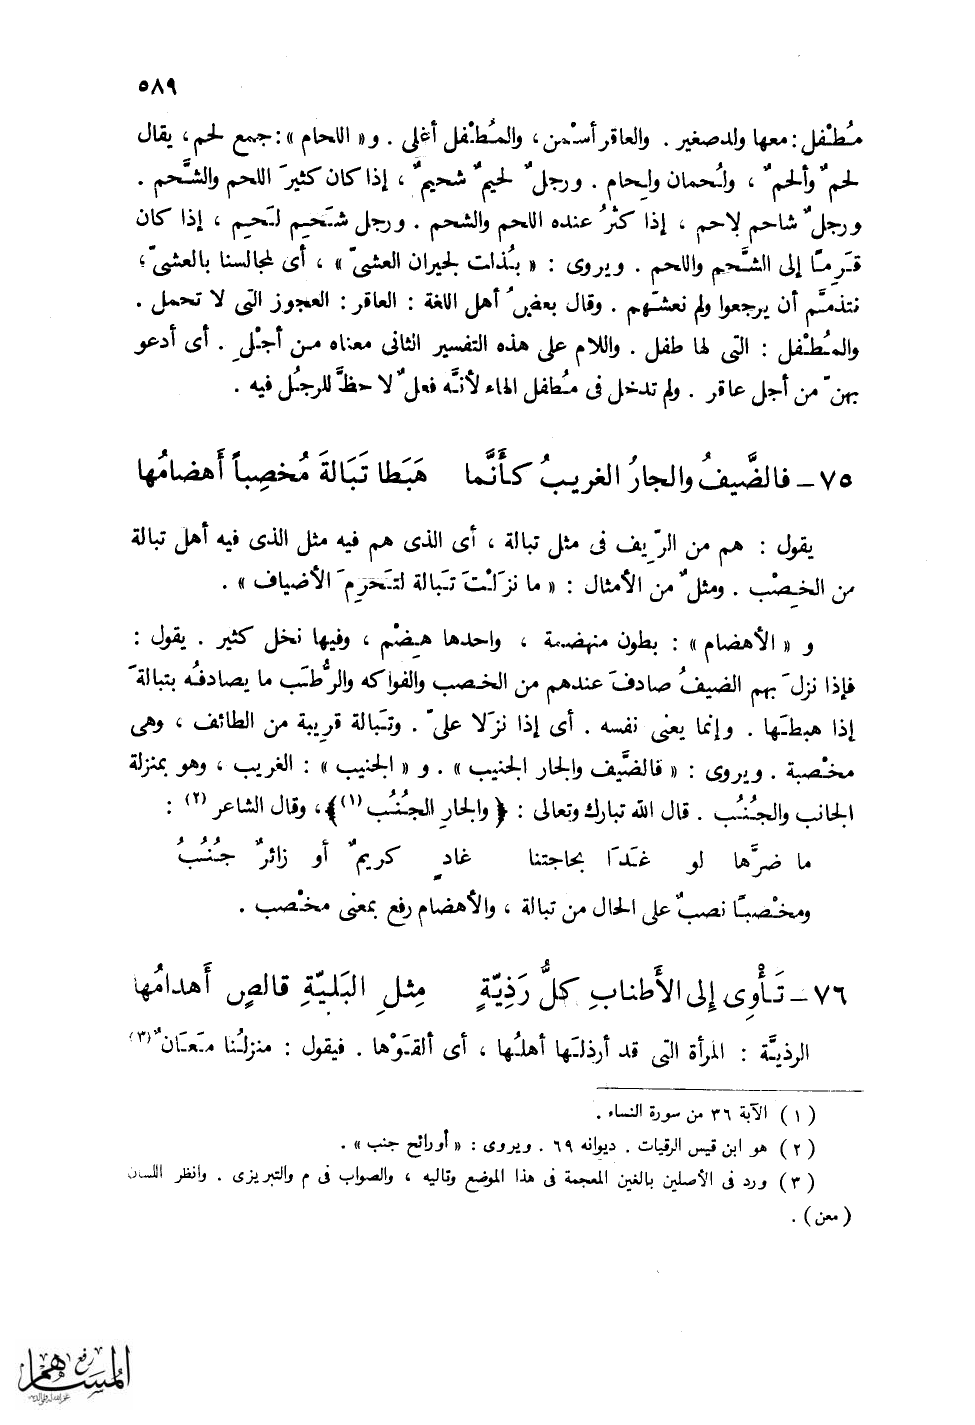 ٥٨٩
مُطْفل: معها ولد صغير. والعاقر أسْمن، والمُطْفل أغلى. و« اللحام »: جمع لحم، يقال
لحمٌ وألحمٌ ، ولُحمان ولِحام . ورجلٌ لحيمٌ شحيمٌ ، إذا كان كثيرَ اللحم والشَّحم .
ورجلٌ شاحم لاحم ، إذا كثُر عنده اللحم والشحم . ورجل شَحِيم لَحِيم ، إذا كان
قَرِمًا إلى الشَّحم واللحم . ويروى : « بُذلت لجيران العشىّ » ، أى لمجالسنا بالعشىّ ؛
نتذمَّم أن يرجعوا ولم نعشِّهم . وقال بعضُ أهل اللغة : العاقر : العجوز التى لا تحمل .
والمُطْفل : التى لها طفل . واللام على هذه التفسير الثانى معناه من أجْلِى . أى أدعو
بهنّ من أجل عاقر . ولم تدخل فى مُطفل الهاء لأنَّه فعلٌ لا حظَّ للرجُل فيه .
٧٥ ـ فالضَّيفُ والجارُ الغريبُ كأَنَّما هَبَطا تَبَالةَ مُخصِباً أَهضامُها
يقول : هم من الرِّيف فى مثل تبالة ، أى الذى هم فيه مثل الذى فيه أهل تبالة
من الخِصْب . ومثلٌ من الأمثال : « ما نزَلْتَ تَبالة لتَحرِمَ الأضياف » .
و « الأهضام » : بطون منهضمة ، واحدها هِضْم ، وفيها نخل كثير . يقول :
فإذا نزلَ بهم الضيفُ صادفَ عندهم من الخصب والفواكه والرُّطَب ما يصادفُه بتبالةَ
إذا هبطَها . وإنما يعنى نفسه . أى إذا نزَلا علىّ . وتَبالة قريبة من الطائف ، وهى
مخْصبة . ويروى : « فالضَّيف والجار الجنيب » . و « الجنيب » : الغريب ، وهو بمنزلة
الجانب والجُنُب . قال الله تبارك وتعالى : ﴿ والجارِ الجُنُب (١)﴾، وقال الشاعر (٢) :
ما ضرَّها لو غَدَا بحاجتنا غادٍ كريمٌ أو زائرٌ جُنُبُ
ومخْصبًا نصبٌ على الحال من تبالة ، والأهضام رفع بمعنى مخْصب .
٧٦ ـ تَأْوِى إلى الأَطنابِ كلُّ رَذِيّةٍ مِثلِ البَليّةِ قالصٍ أَهدامُها
الرذيَّة : المرأة التى قد أرذلَها أهلُها ، أى ألقَوْها . فيقول : منزلُنا مَعَانٌ (٣)
( ١ ) الآية ٣٦ من سورة النساء .
( ٢ ) هو ابن قيس الرقيات . ديوانه ٦٩ . ويروى : « أو رائح جنب » .
( ٣ ) ورد فى الأصلين بالغين المعجمة فى هذا الموضع وتاليه ، والصواب فى م والتبريزى . وانظر اللسان
( معن ) .